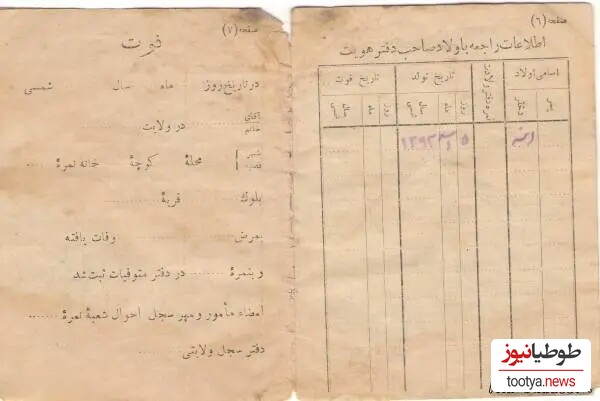 صفحه (۶)
اطلاعات راجعه باولاد صاحب دفتر هویت
اسامی اولاد
نمره دفتر ولادت
تاریخ تولد
تاریخ فوت
پسر
دختر
روز
ماه
سال شمسی
روز
ماه
سال شمسی
۵
صفحه (۷)
فوت
در تاریخ روز ماه سال شمسی
آقای
خانم
در ولایت
شهر
قصبه
محلهٔ کوچهٔ خانه نمرهٔ
بلوک قریهٔ
بمرض وفات یافته
و بنمرهٔ در دفتر متوفیات ثبت شد
امضاء مأمور و مهر سجل احوال شعبهٔ نمرهٔ
دفتر سجل ولایتی
طوطیانیوز
tootya.news